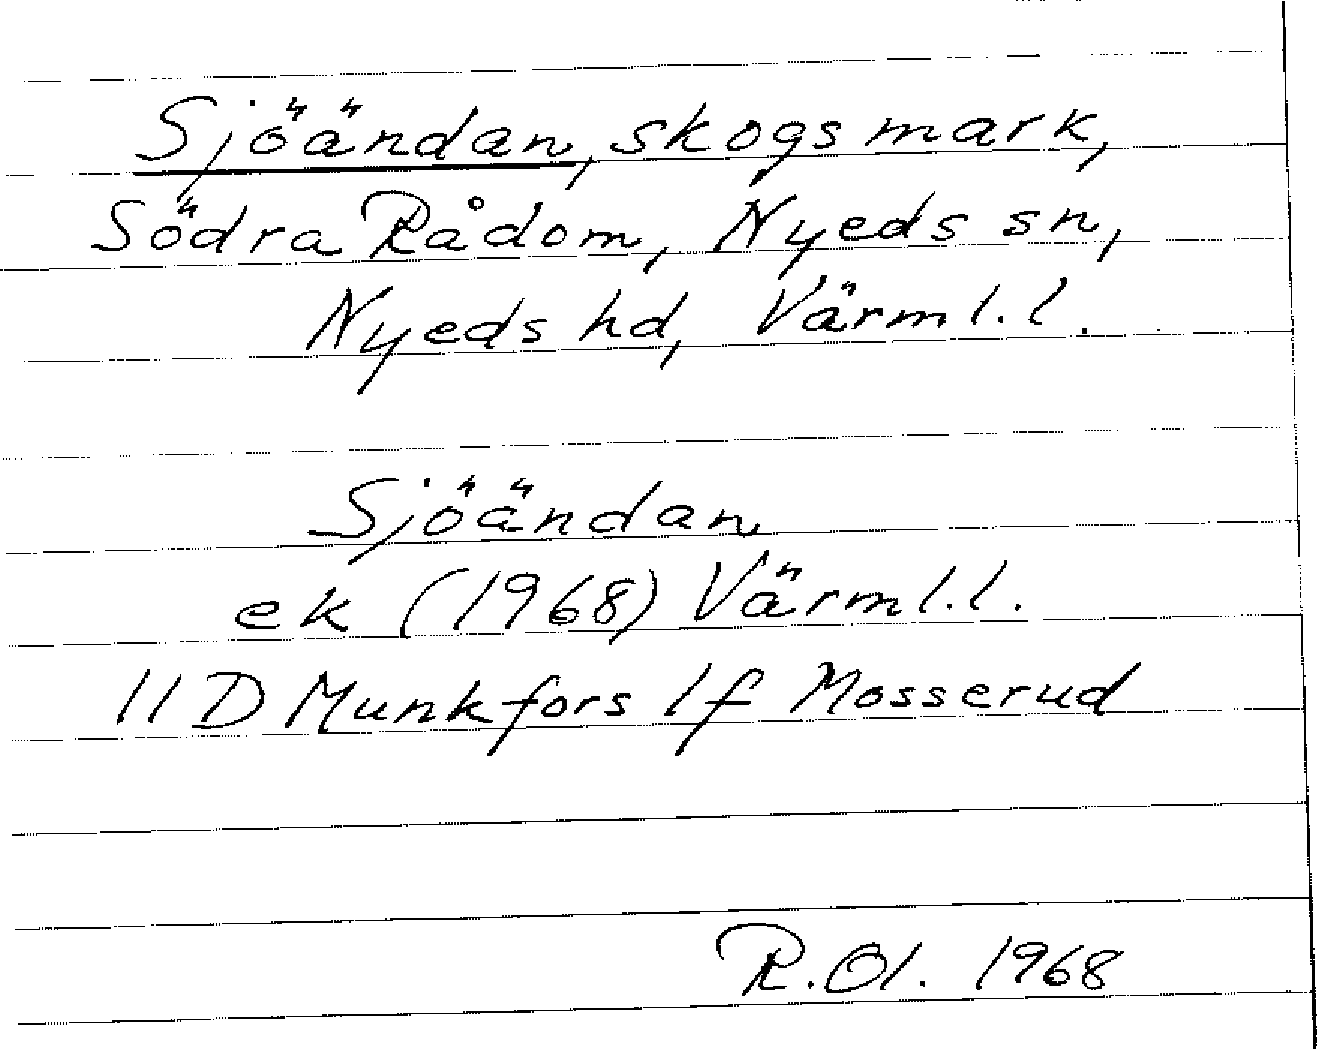 Sjöändan, skogsmark,
Södra Rådom, Nyeds sn,
Nyeds hd, Värml.l.
Sjöändan
ek (1968) Värml.l.
11 D Munkfors 1f Mosserud
R.Ol. 1968